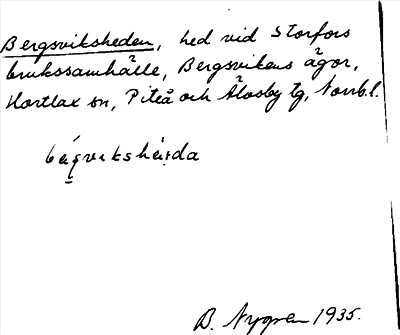 Bergsviksheden, hed vid Storfors
brukssamhälle, Bergsvikens ägor,
Hortlax sn, Piteå och Älvsby tg, Norrb. l.
B. Nygren 1935.